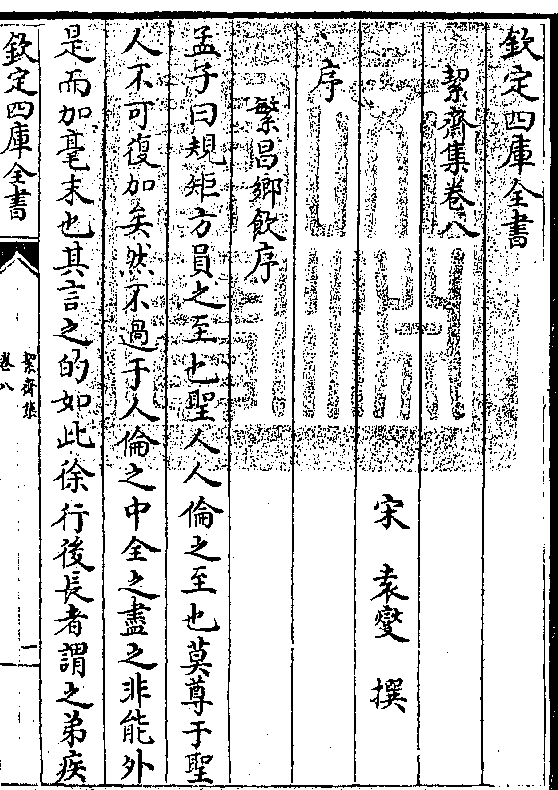 欽定四庫全書
絜齋集卷八
宋 袁燮 撰
序
繁昌鄉飲序
孟子曰規矩方員之至也聖人人倫之至也莫尊于聖
人不可復加矣然不過于人倫之中全之盡之非能外
是而加毫末也其言之的如此徐行後長者謂之弟疾
欽定四庫全書
絜齋集
卷八
一